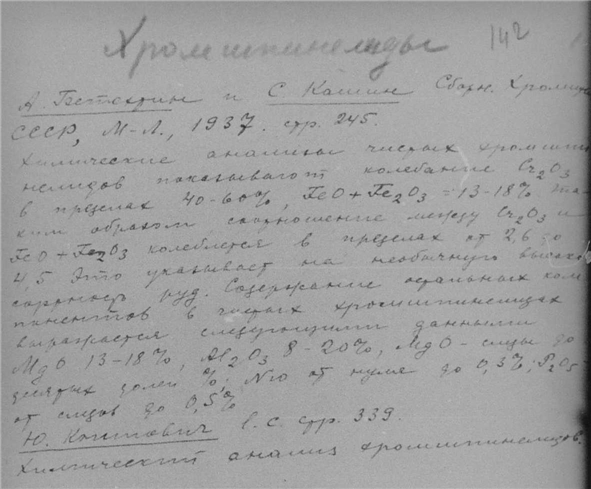 Хромшпинелиды 142
А. Бетехтин и С. Кашин Сборн. Хромиты
СССР, М-Л., 1937. стр. 245.
Химические анализы чистых хромшпи
нелидов показывают колебание Cr2O3
в пределах 40-60%, FeO+Fe2O3 = 13-18% та-
ким образом соотношение между Cr2O3 и
FeO+Fe2O3 колеблется в пределах от 2,6 до
4,5 Это указывает на необычную высоко
сортность руд. Содержание остальных ком
понентов в чистых хромшпинелидах
выражается следующими данными
MgO 13-18%, Al2O3 8-20%, MgO - следы до
десятых долей %. NiO от нуля до 0,3%; P2O5 -
от следов до 0,5%
Ю. Колтович l.c. стр. 339.
Химический анализ хромшпинелидов.